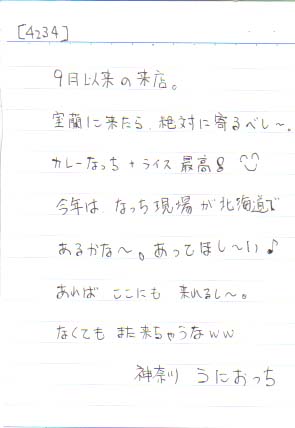 [4234]
9月以来の来店。
室蘭に来たら、絶対に寄るべし〜。
カレーなっち+ライス 最高8
今年は なっち現場が北海道で
あるかな〜。あってほし〜い♪
あれば ここにも 来れるし〜。
なくても また来ちゃうなww
神奈川 うにおっち